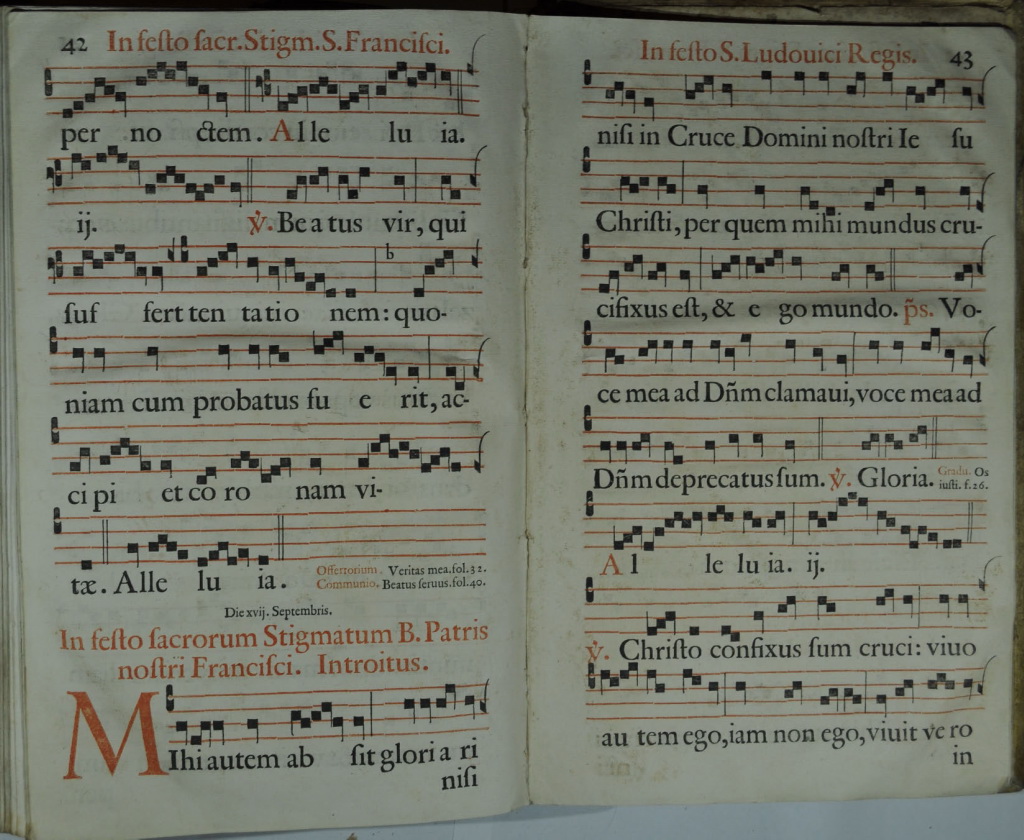 42 In feſto ſacr. Stigm. S. Franciſci.
per no ctem. Alle lu ia.
ij. ℣. Be a tus vir, qui
b
ſuf fert ten ta tio nem: quo-
niam cum probatus fu e rit, ac-
ci pi et co ro nam vi-
tæ. Alle lu ia. Offertorium. Veritas mea. fol. 32.
Communio. Beatus ſeruus. fol. 40.
Die xvij. Septembris.
In feſto ſacrorum Stigmatum B. Patris
noſtri Franciſci. Introitus.
MIhi autem ab ſit glori a ri
niſi
In feſto S. Ludouici Regis. 43
niſi in Cruce Domini noſtri Ie ſu
Chriſti, per quem mihi mundus cru-
cifixus eſt, & e go mundo. p̃s. Vo-
ce mea ad Dñm clamaui, voce mea ad
Dñm deprecatus ſum. ℣. Gloria. Gradu. Os
iuſti. f. 26.
Al le lu ia. ij.
℣. Chriſto confixus ſum cruci: viuo
au tem ego, iam non ego, viuit ve ro
in